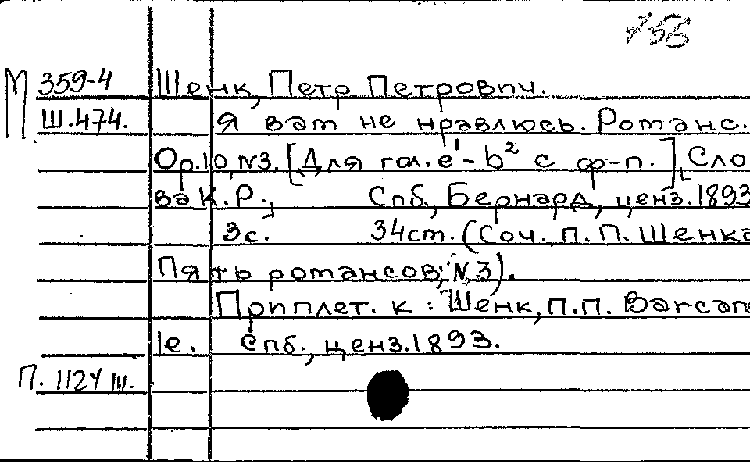 М 359-4 Шенк, Петр Петрович.
Ш.474. Я вам не нравлюсь. Романс.
Op.10, №3. [Для гол. e¹-b² с ф-п.], Сло
ва К.Р., Спб., Бернард, ценз.1893
3с. 34см. (Соч. П.П. Шенка
Пять романсов, №3).
Приплет. к: Шенк, П.П. Barcaro
le. Спб., ценз.1893.
П. 1124 ш.